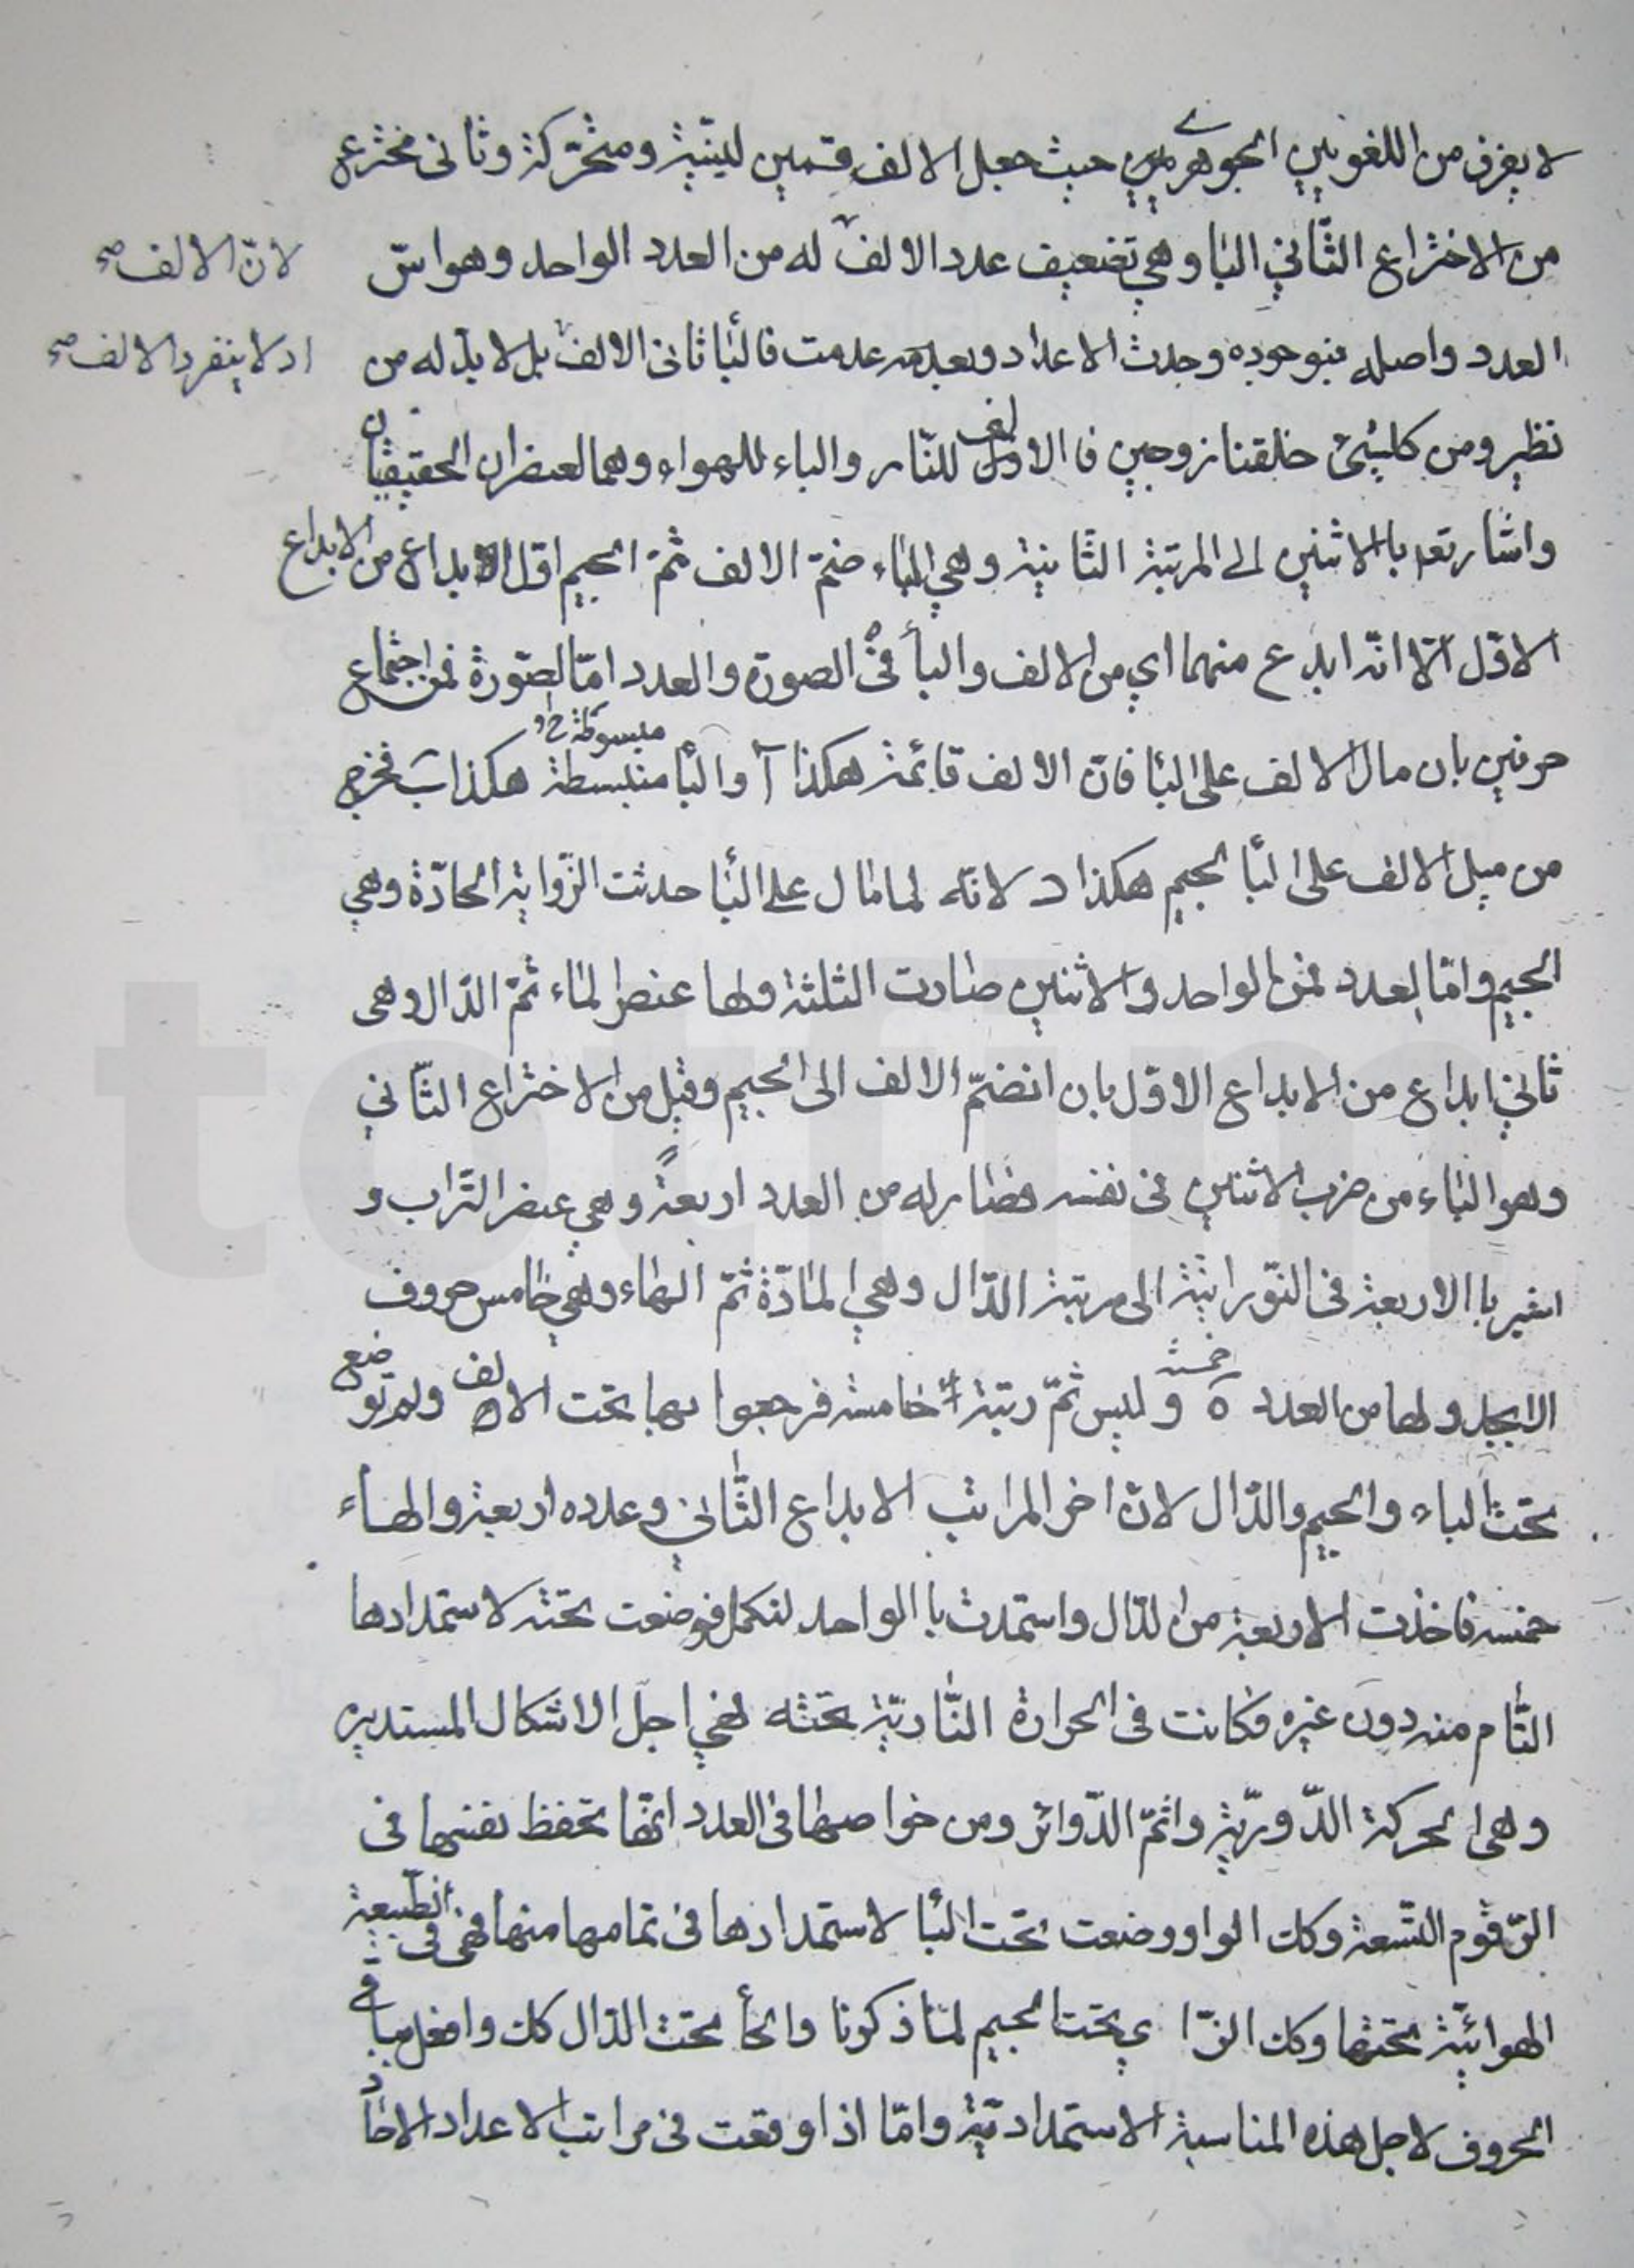 لا يعرف من اللغويين الجوهري حيث جعل الالف قسمين ليّنية ومتحرّكة وثانى مخترع
من الاختراع الثّاني البا وهي تضعيف عدد الالف له من العدد الواحد وهو اسّ
لانّ الالف صح
العدد واصله فبوجوده وجدت الاعداد وبعدمه عدمت فالبا ثانى الالف بل لا بدّ له من
اذ لا ينفرد الالف صح
نظير ومن كلشئ خلقنا زوجين فا الالف للنّار والباء للهواء وهما العنصران الحقيقيان
واشار تعه با الاثنين الى المرتبة الثانية وهي الباء ضمّ الالف ثمّ الجيم اوّل الابداع من الابداع
الاوّل الّا انّه ابدع منهما اي من الالف والبأ فى الصورة والعدد امّا الصّورة فمن اجتماع
حرفين بان مال الالف على البا فانّ الالف قائمة هكذا آ والبا منبسطة هكذا ب فخرج
مبسوطة خ‍ل
من ميل الالف على البا الجيم هكذا د لانّه لما مال على البا حدثت الزّواية الحادّة وهي
الجيم وامّا العدد فمن الواحد والاثنين صارت الثلثة ولها عنصر الماء ثمّ الدّال وهى
ثاني ابداع من الابداع الاوّل بان انضمّ الالف الى الجيم وقيل من الاختراع الثّاني
وهو الباء من ضرب الاثنين فى نفسه فصار له من العدد اربعةً وهي عنصر التّراب و
اشير با الاربعة فى النّورانيّة الى مرتبة الدّال وهي المادّة ثمّ الهاء وهي خامس حروف
الابجد ولها من العدد ه خمسة وليس ثمّ رتبة خامسة فرجعوا بها تحت الالف ولم توضع
تحت الباء والجيم والدّال لانّ اخر المراتب الابداع الثّاني وعدده اربعة والهاء
خمسة فاخذت الاربعة من الدّال واستمدت با الواحد لتكمل فوضعت تحته لاستمدادها
التّام منه دون غيره فكانت فى الحرارة النّاريّة تحته فهي اجل الاشكال المستديره
وهى الحركة الدّوريّة واتمّ الدّوائر ومن خواصها فى العدد انّها تحفظ نفسها فى
الرّقوم التّسعة وكك الواو وضعت تحت البا لاستمدادها فى تمامها منها فهى فى الطّبيعة
الهوائيّة تحتها وكك الزّاي تحت الجيم لما ذكرنا والحأ تحت الدّال كك وافعل بباقي
الحروف لاجل هذه المناسبة الاستمداديّة وامّا اذا وقعت فى مراتب الاعداد الاحاد